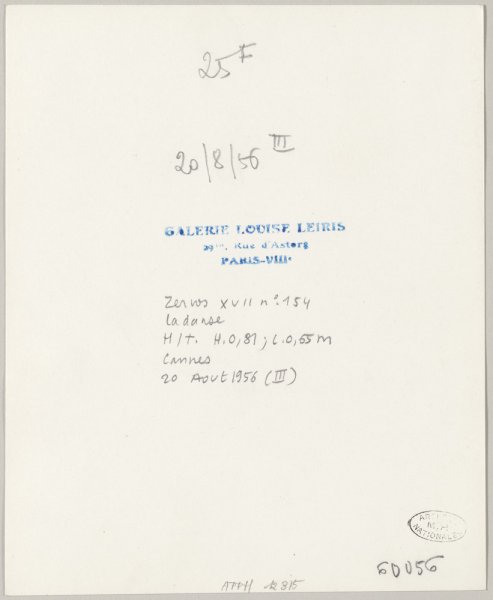 25F
20/8/56 III
GALERIE LOUISE LEIRIS
29bis, Rue d'Astorg
PARIS-VIIIe
Zervos XVII n°. 154
la danse
H/t. H.0,81; L.0,65m
Cannes
20 Aout 1956 (III)
NATIONALES
APPH 12815